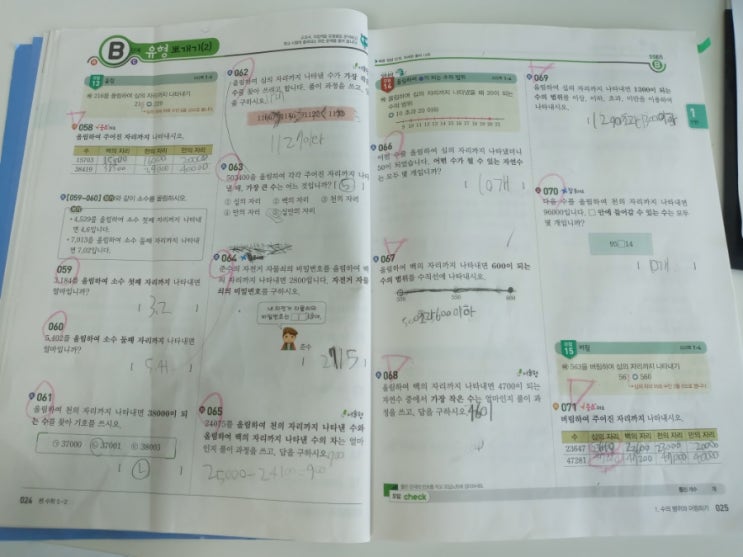 B
유형 뽀개기(2)
유형
13
올림
216을 올림하여 십의 자리까지 나타내기
058
올림하여 주어진 자리까지 나타내시오.
수
백의 자리
천의 자리
만의 자리
15703
16000
20000
38419
39000
40000
[059~060] 보기와 같이 소수를 올림하시오.
보기
• 4.529를 올림하여 소수 첫째 자리까지 나타내
면 4.6입니다.
• 7.013을 올림하여 소수 둘째 자리까지 나타내
면 7.02입니다.
059
3.184를 올림하여 소수 첫째 자리까지 나타내면
얼마입니까?
3.2
060
5.402를 올림하여 소수 둘째 자리까지 나타내면
얼마입니까?
5.41
061
올림하여 천의 자리까지 나타내면 38000이 되
는 수를 찾아 기호를 쓰시오.
㉠ 37000 ㉡ 37001 ㉢ 38003
㉡
024 쎈 수학 5-2
062
올림하여 십의 자리까지 나타낸 수가 가장
수를 찾아 쓰려고 합니다. 풀이 과정을 쓰고,
을 구하시오.
063
503400을 올림하여 각각 주어진 자리까지 나타
낼 때, 가장 큰 수는 어느 것입니까? ( 5 )
① 십의 자리 ② 백의 자리 ③ 천의 자리
④ 만의 자리 ⑤ 십만의 자리
064
준수의 자전거 자물쇠의 비밀번호를 올림하여 백
의 자리까지 나타내면 2800입니다. 자전거 자물
쇠의 비밀번호를 구하시오.
내 자전거 자물쇠의
준수
2715
065
24015를 올림하여 천의 자리까지 나타낸 수와
올림하여 백의 자리까지 나타낸 수의 차는 얼마
인지 풀이 과정을 쓰고, 답을 구하시오.
25000-24100=900
유형
14
올림하기 전의 수의 범위
올림하여 십의 자리까지 나타냈을 때 20이 되는
수의 범위
10 초과 20 이하
066
어떤 수를 올림하여 십의 자리까지 나타냈더니
50이 되었습니다. 어떤 수가 될 수 있는 자연수
는 모두 몇 개입니까?
10개
067
올림하여 백의 자리까지 나타내면 600이 되는
수의 범위를 수직선에 나타내시오.
500 550 600
500초과600이하
068
올림하여 백의 자리까지 나타내면 4700이 되는
자연수 중에서 가장 작은 수는 얼마인지 풀이 과
정을 쓰고, 답을 구하시오.
4601
069
올림하여 십의 자리까지 나타내면 1300이 되는
수의 범위를 이상, 이하, 초과, 미만을 이용하여
나타내시오.
070
다음 수를 올림하여 천의 자리까지 나타내면
96000입니다. □ 안에 들어갈 수 있는 수는 모두
몇 개입니까?
95□14
10개
유형
15
버림
563을 버림하여 십의 자리까지 나타내기
563 → 560
071
버림하여 주어진 자리까지 나타내시오.
수
십의 자리
백의 자리
천의 자리
만의 자리
23647
23600
23000
20000
47281
47200
47000
40000
유형 check
틀린 개수 개
1. 수의 범위와 어림하기 025